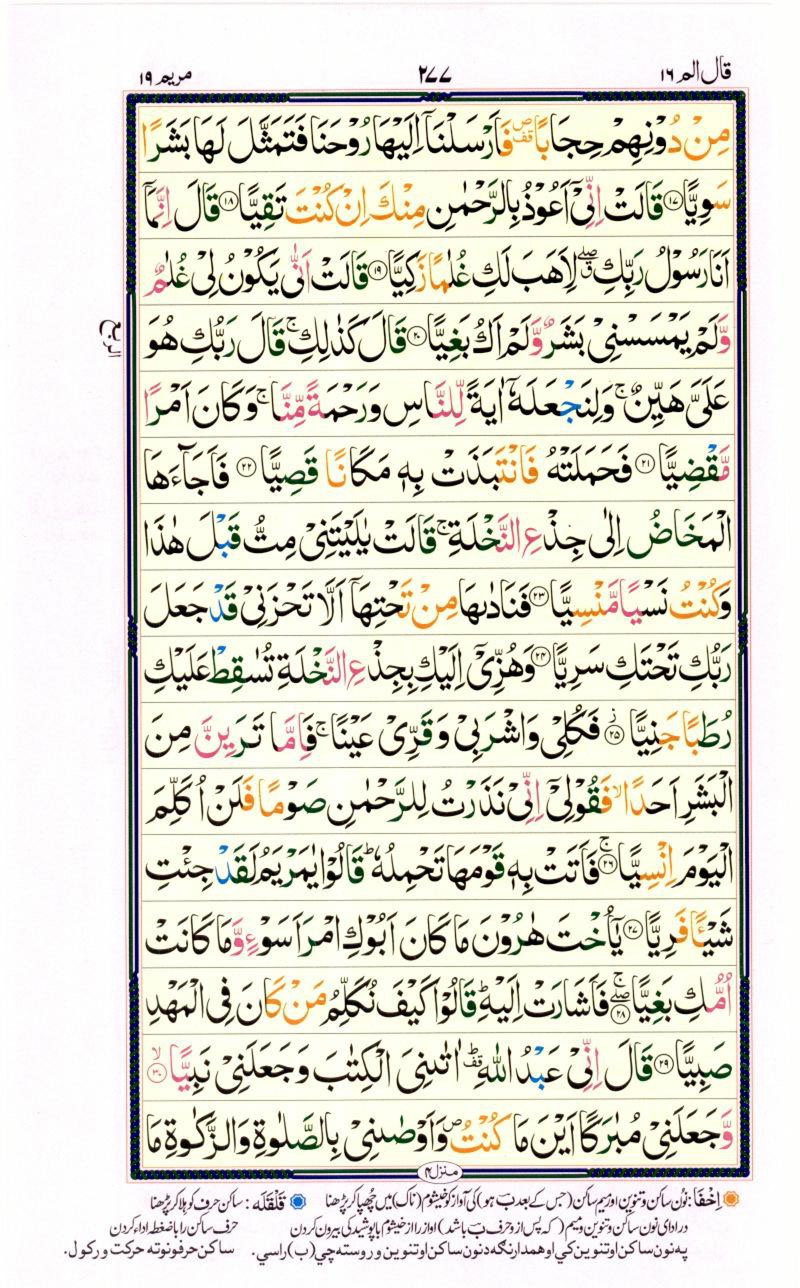 قال الم ١٦ ٢٧٧ مريم ١٩
مِنْ دُوْنِهِمْ حِجَابًا ۪ۖ فَاَرْسَلْنَاۤ اِلَيْهَا رُوْحَنَا فَتَمَثَّلَ لَهَا بَشَرًا
سَوِيًّا ﴿۱۷﴾ قَالَتْ اِنِّيْۤ اَعُوْذُ بِالرَّحْمٰنِ مِنْكَ اِنْ كُنْتَ تَقِيًّا ﴿۱۸﴾ قَالَ اِنَّمَاۤ
اَنَا رَسُوْلُ رَبِّكِ ۖۗ لِاَهَبَ لَكِ غُلٰمًا زَكِيًّا ﴿۱۹﴾ قَالَتْ اَنّٰى يَكُوْنُ لِيْ غُلٰمٌ
وَّلَمْ يَمْسَسْنِيْ بَشَرٌ وَّلَمْ اَكُ بَغِيًّا ﴿۲۰﴾ قَالَ كَذٰلِكِ ۚ قَالَ رَبُّكِ هُوَ
الربع
عَلَيَّ هَيِّنٌ ۚ وَلِنَجْعَلَهٗۤ اٰيَةً لِّلنَّاسِ وَرَحْمَةً مِّنَّا ۚ وَكَانَ اَمْرًا
مَّقْضِيًّا ﴿۲۱﴾ فَحَمَلَتْهُ فَانْتَبَذَتْ بِهٖ مَكَانًا قَصِيًّا ﴿۲۲﴾ فَاَجَآءَهَا
الْمَخَاضُ اِلٰى جِذْعِ النَّخْلَةِ ۚ قَالَتْ يٰلَيْتَنِيْ مِتُّ قَبْلَ هٰذَا
وَكُنْتُ نَسْيًا مَّنْسِيًّا ﴿۲۳﴾ فَنَادٰىهَا مِنْ تَحْتِهَاۤ اَلَّا تَحْزَنِيْ قَدْ جَعَلَ
رَبُّكِ تَحْتَكِ سَرِيًّا ﴿۲۴﴾ وَهُزِّيْۤ اِلَيْكِ بِجِذْعِ النَّخْلَةِ تُسٰقِطْ عَلَيْكِ
رُطَبًا جَنِيًّا ﴿۲۵﴾ ز فَكُلِيْ وَاشْرَبِيْ وَقَرِّيْ عَيْنًا ۚ فَاِمَّا تَرَيِنَّ مِنَ
الْبَشَرِ اَحَدًا ۙ فَقُوْلِيْۤ اِنِّيْ نَذَرْتُ لِلرَّحْمٰنِ صَوْمًا فَلَنْ اُكَلِّمَ
الْيَوْمَ اِنْسِيًّا ﴿۲۶﴾ۚ فَاَتَتْ بِهٖ قَوْمَهَا تَحْمِلُهٗ ؕ قَالُوْا يٰمَرْيَمُ لَقَدْ جِئْتِ
شَيْـًٔا فَرِيًّا ﴿۲۷﴾ يٰۤاُخْتَ هٰرُوْنَ مَا كَانَ اَبُوْكِ امْرَاَ سَوْءٍ وَّمَا كَانَتْ
اُمُّكِ بَغِيًّا ﴿۲۸﴾ۖۚ فَاَشَارَتْ اِلَيْهِ ؕ قَالُوْا كَيْفَ نُكَلِّمُ مَنْ كَانَ فِي الْمَهْدِ
صَبِيًّا ﴿۲۹﴾ قَالَ اِنِّيْ عَبْدُ اللّٰهِ ؕ۟ اٰتٰىنِيَ الْكِتٰبَ وَجَعَلَنِيْ نَبِيًّا ﴿۳۰﴾ۙ
وَّجَعَلَنِيْ مُبٰرَكًا اَيْنَ مَا كُنْتُ ۪ وَاَوْصٰىنِيْ بِالصَّلٰوةِ وَالزَّكٰوةِ مَا
منزل ۴
اِخفَا: نُون ساکن و تنوین اور میم ساکن (جس کے بعد ب ہو) کی آواز کو خیشوم (ناک) میں چُھپا کر پڑھنا قَلقَلَه: ساکن حرف کو ہلا کر پڑھنا
در ادای نون ساکن و تنوین و میم (که پس از و حرف ب باشد) اواز را از خیشوم با پوشیدگی بیرون کردن حرف ساکن را با ضغطه ادا کردن
په نون ساکن او تنوین کي او همدارنگه د نون ساکن او تنوین وروسته چي (ب) راسي. ساکن حرفونو ته حرکت ورکول.